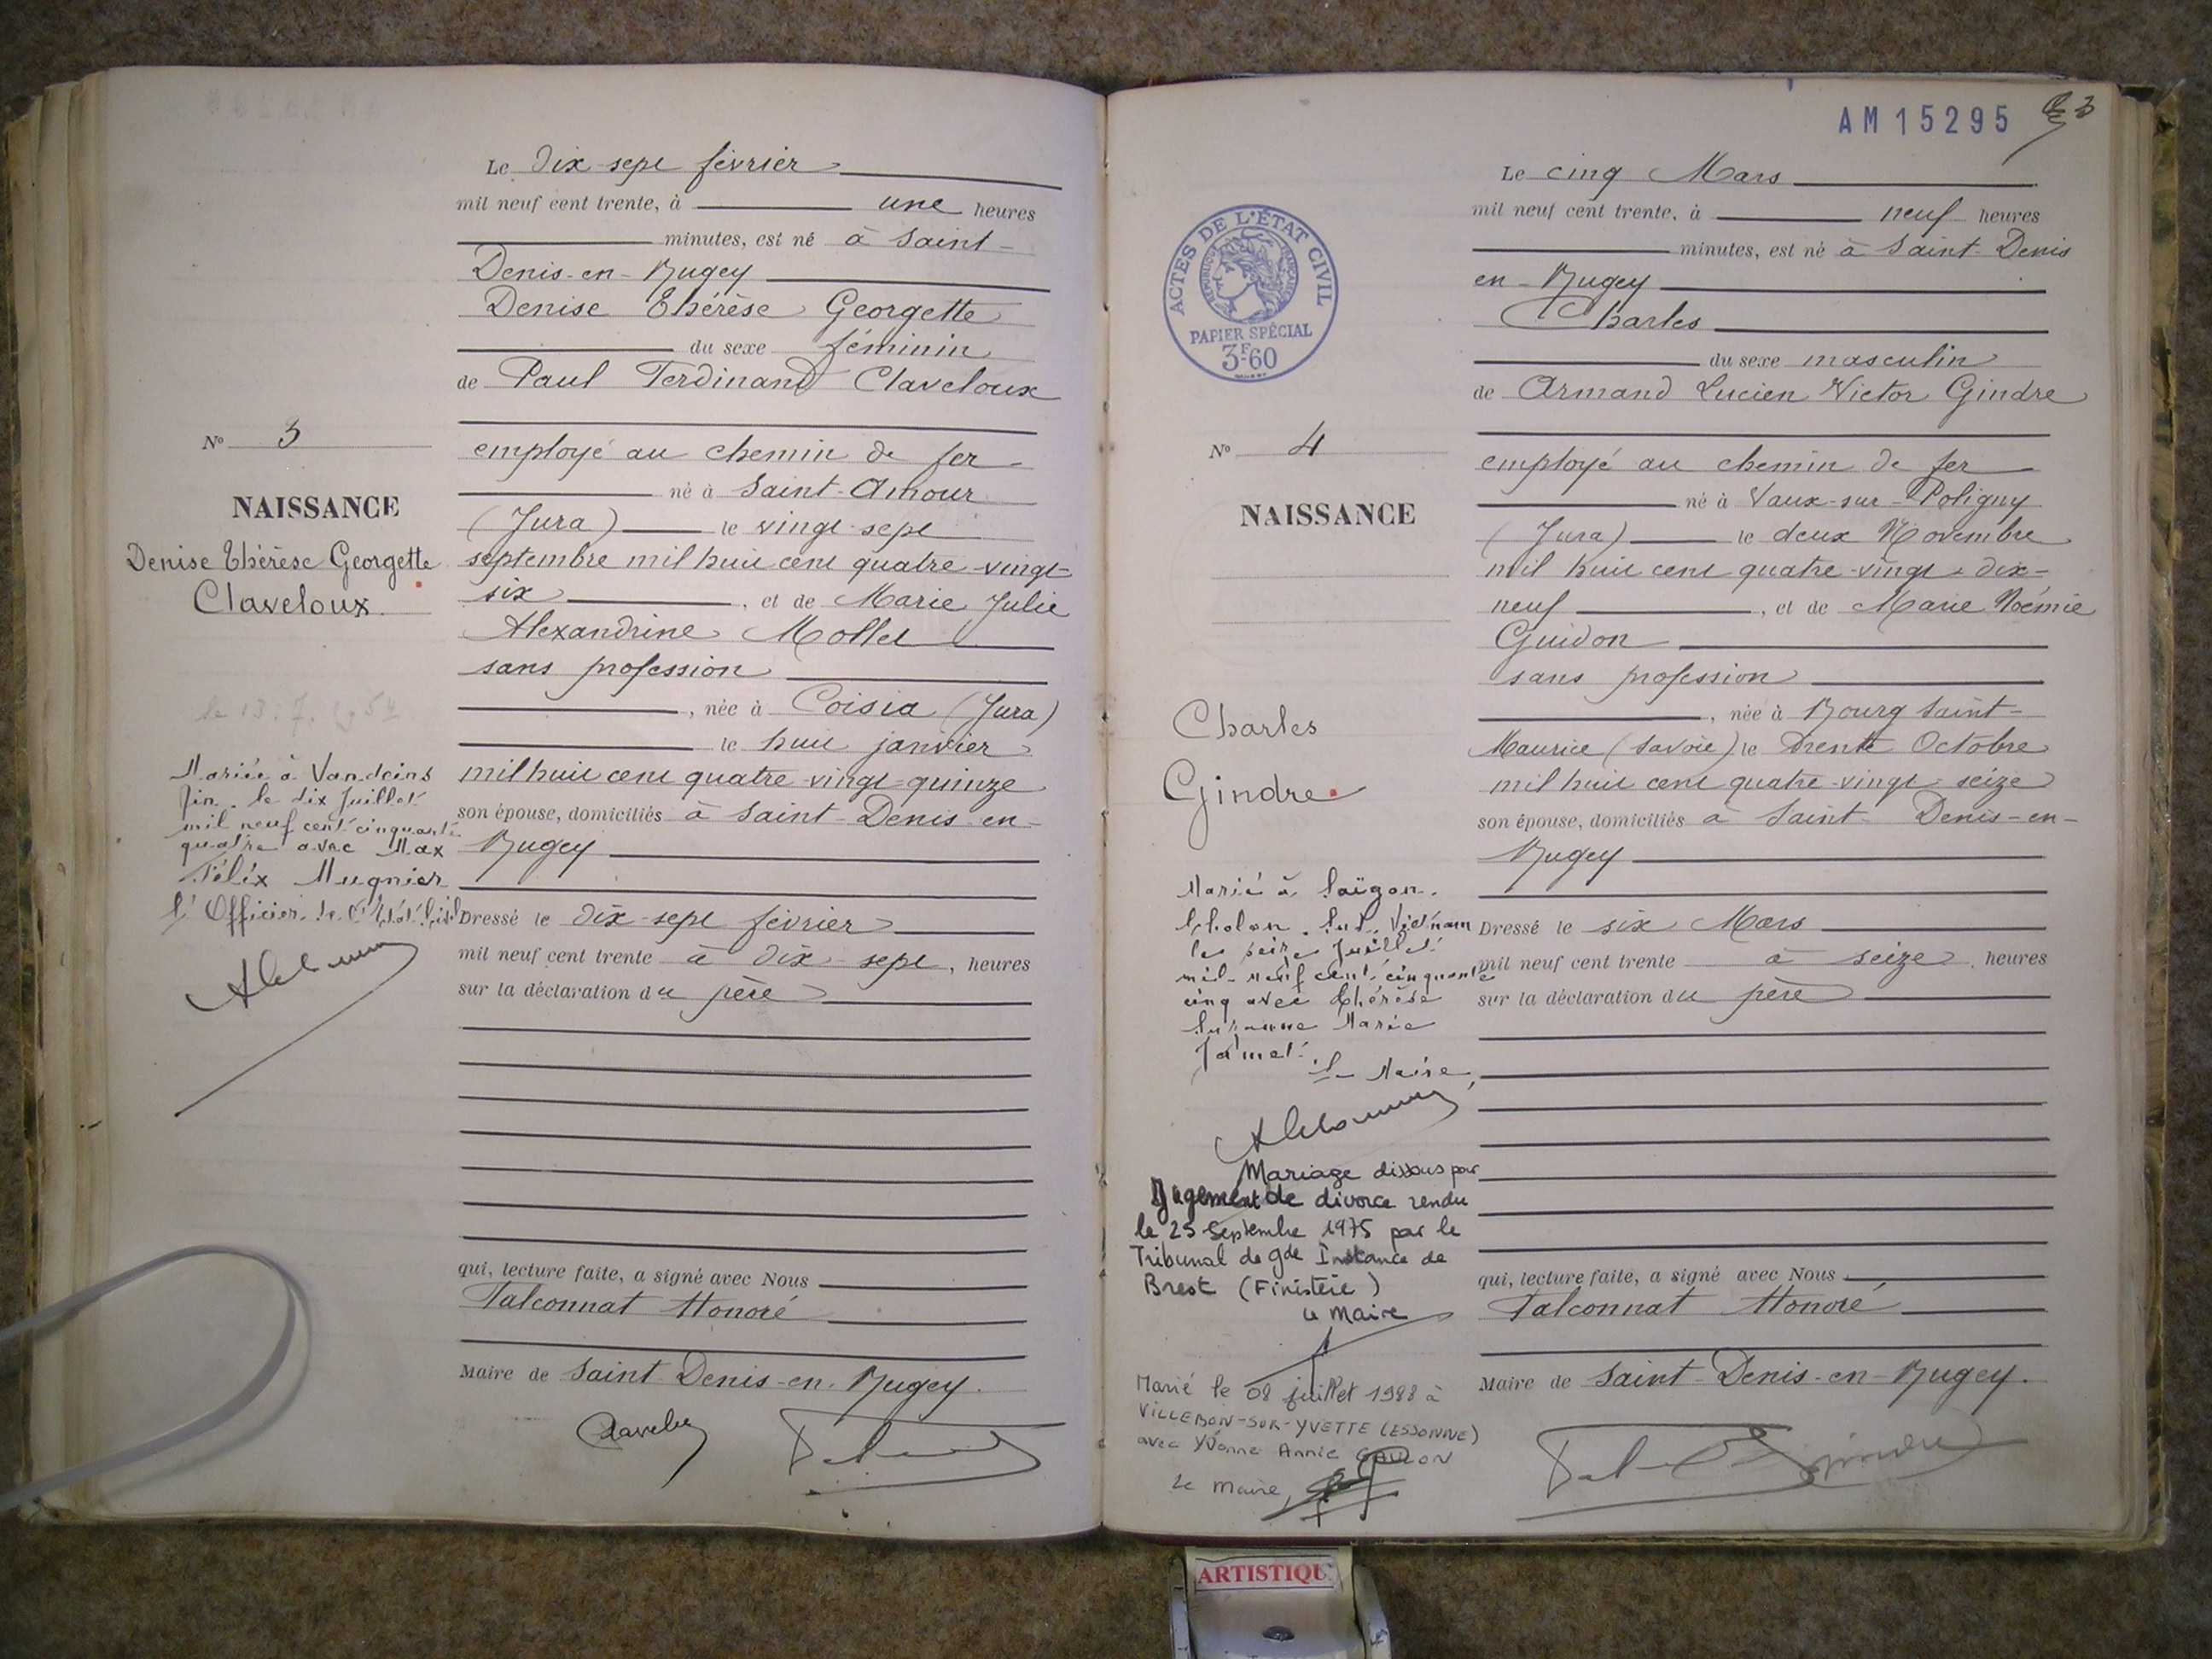 Le dix-sept février
mil neuf cent trente, à une heures
minutes, est né à Saint-
Denis-en-Bugey
Denise Thérèse Georgette
du sexe féminin
de Paul Ferdinand Claveloux
employé au chemin de fer
né à Saint-Amour
(Jura) le vingt-sept
septembre mil huit cent quatre-vingt-
six, et de Marie Julie
Alexandrine Mollet
sans profession
, née à Coisia (Jura)
le huit janvier
mil huit cent quatre-vingt-quinze
son épouse, domiciliés à Saint-Denis-en-
Bugey
Dressé le dix-sept février
mil neuf cent trente à dix-sept, heures
sur la déclaration du père
qui, lecture faite, a signé avec Nous
Falconnat Honoré
Maire de Saint-Denis-en-Bugey.
N° 3
NAISSANCE
Denise Thérèse Georgette
Claveloux
Mariée à Vandeins
Ain. le dix Juillet
mil neuf cent cinquante
quatre avec Max
Félix Mugnier
l'Officier de l'Etat Civil
AM 15295
Le cinq Mars
mil neuf cent trente, à neuf heures
minutes, est né à Saint-Denis
en-Bugey
Charles
du sexe masculin
de Armand Lucien Victor Gindre
employé au chemin de fer
né à Vaux-sur-Poligny
(Jura) le deux Novembre
mil huit cent quatre-vingt-dix-
neuf, et de Marie Noémie
Guidon
sans profession
, née à Bourg Saint-
Maurice (Savoie) le trente Octobre
mil huit cent quatre-vingt-seize
son épouse, domiciliés à Saint-Denis-en-
Bugey
Dressé le six Mars
mil neuf cent trente à seize, heures
sur la déclaration du père
qui, lecture faite, a signé avec Nous
Falconnat Honoré
Maire de Saint-Denis-en-Bugey.
ACTES DE L'ÉTAT CIVIL
RÉPUBLIQUE FRANÇAISE
PAPIER SPÉCIAL
3F60
N° 4
NAISSANCE
Charles
Gindre
Marié à Saïgon.
Cholon. Sud. Vietnam
le seize Juillet
mil neuf cent cinquante
cinq avec Thérèse
Suzanne Marie
Jamet.
Le Maire,
Mariage dissous par
Jugement de divorce rendu
le 25 Septembre 1975 par le
Tribunal de gde Instance de
Brest (Finistère)
Le Maire
Marié le 08 juillet 1988 à
VILLEBON-SUR-YVETTE (ESSONNE)
avec Yvonne Annie
Le Maire,
ARTISTIQU